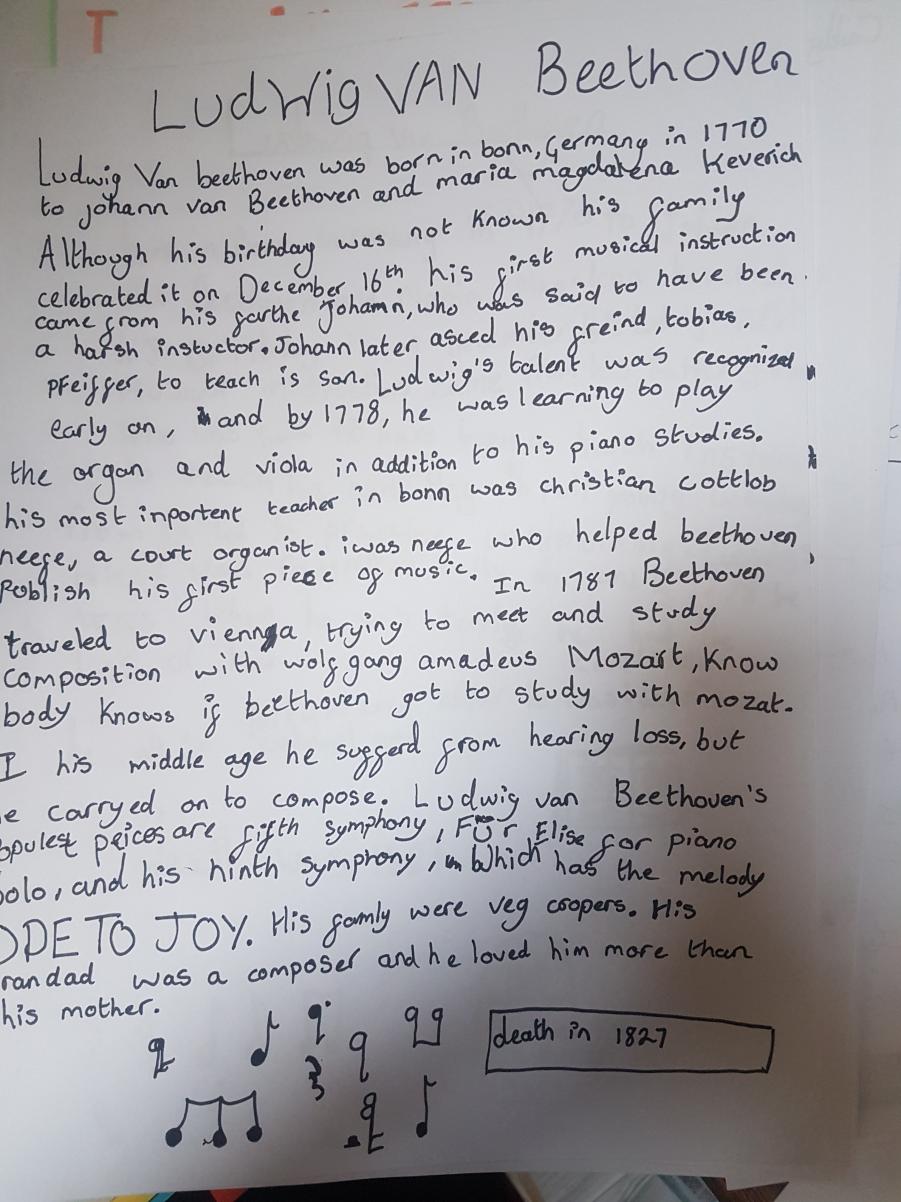 T
LudWig VAN Beethoven
Ludwig Van beethoven was born in bonn, Germany in 1770
to johann van Beethoven and maria magdalena Keverich
Although his birthday was not Known his family
celebrated it on December 16th. his first musical instruction
came from his farthe Johamn, who was said to have been.
a harsh instuctor. Johann later asced his freind, tobias,
Pfeiffer, to teach is son. Ludwig's talent was recognized
early on, and by 1778, he was learning to play
the organ and viola in addition to his piano studies.
his most inportent teacher in bonn was christian cottlob
neefe, a court organist. iwas neefe who helped beethoven
Poblish his first piece of music. In 1787 Beethoven
traveled to vienna, trying to meet and study
Composition with wolfgang amadeus Mozart, Know
body Knows if beethoven got to study with mozat.
I his middle age he sufferd from hearing loss, but
e carryed on to compose. Ludwig van Beethoven's
opulest peices are fifth symphony, FÜr Elise for piano
olo, and his ninth symphony, which has the melody
ODE TO JOY. His famly were veg coopers. His
randad was a composer and he loved him more than
his mother.
death in 1827